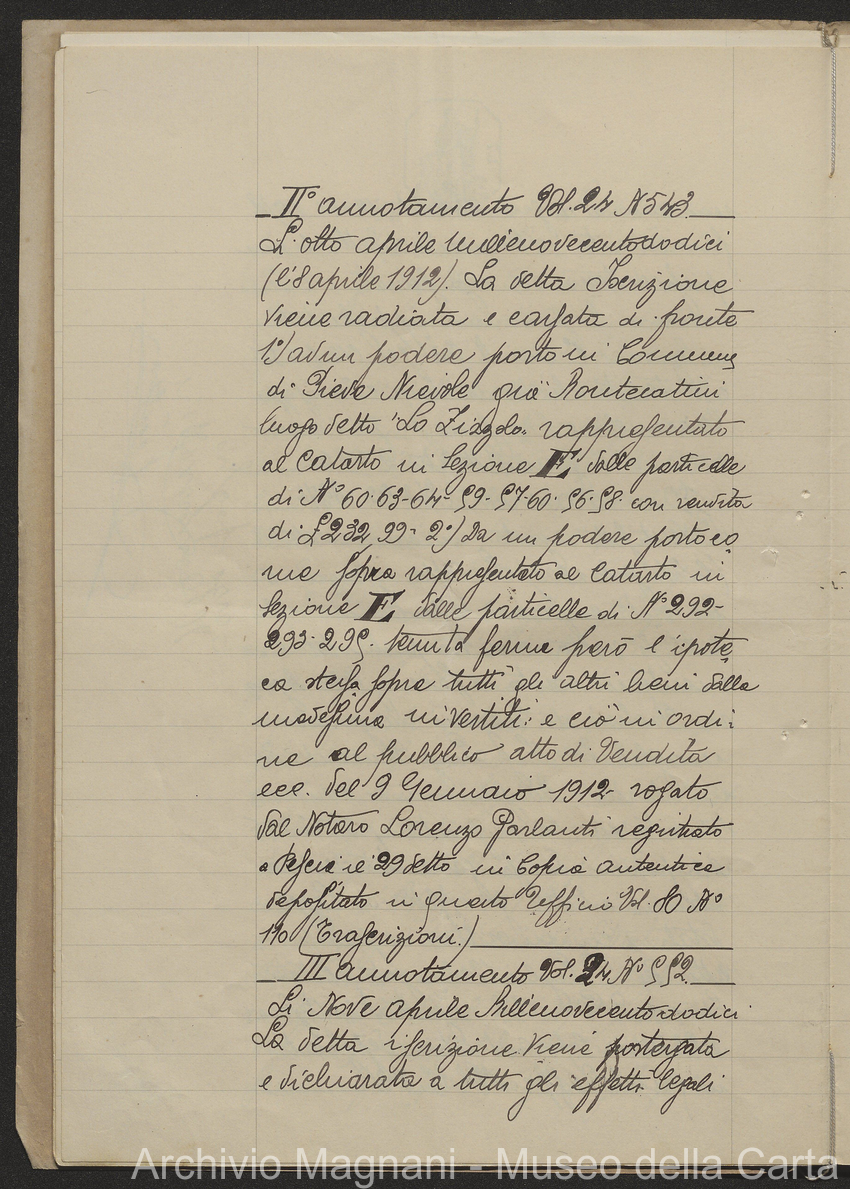 II° annotamento Vol. 24 N 543
L'otto aprile millenovecentododici
(l'8 aprile 1912). La detta Iscrizione
viene radiata e cassata di fronte
1°) ad un podere posto in Comune
di Pieve Nievole già Montecatini
luogo detto "Lo Zizzolo" rappresentato
al Catasto in Sezione E dalle particelle
di N° 60-63-64-59-57-60-56-58 con rendita
di £ 232,99- 2°) Da un podere posto co
me sopra rappresentato al Catasto in
Sezione E dalle particelle di N° 292-
293-295. tenuta ferma però l'ipote
ca stessa sopra tutti gli altri beni dalla
medesima investiti: e ciò in ordi:
ne al pubblico atto di Vendita
ecc. del 9 Gennaio 1912- rogato
dal Notaro Lorenzo Parlanti registrato
a Pescia il 29 detto in Copia autentica
depositato in questo Ufficio Vol. 80 N°
110 (Trascrizioni.)
III annotamento Vol. 24 N° 552
Li Nove Aprile Millenovecentododici
La detta iscrizione viene postergata
e dichiarata a tutti gli effetti legali
Archivio Magnani - Museo della Carta